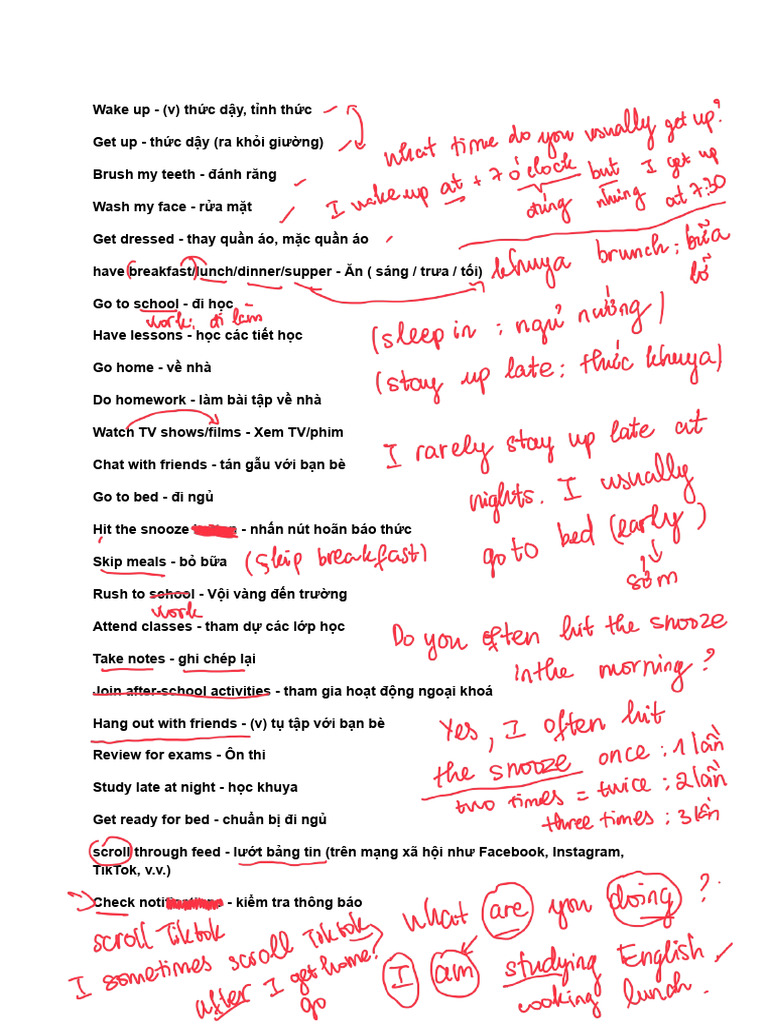 Wake up - (v) thức dậy, tỉnh thức
Get up - thức dậy (ra khỏi giường)
What time do you usually get up?
Brush my teeth - đánh răng
I wake up at + 7 o'clock but I get up
đúng nhưng at 7:30
Wash my face - rửa mặt
Get dressed - thay quần áo, mặc quần áo
have breakfast/lunch/dinner/supper - Ăn ( sáng / trưa / tối)
khuya brunch: bữa
lỡ
Go to school - đi học
work: đi làm
(sleep in : ngủ nướng)
Have lessons - học các tiết học
Go home - về nhà
(stay up late: thức khuya)
Do homework - làm bài tập về nhà
Watch TV shows/films - Xem TV/phim
I rarely stay up late at
nights. I usually
go to bed (early)
sớm
Chat with friends - tán gẫu với bạn bè
Go to bed - đi ngủ
Hit the snooze - nhấn nút hoãn báo thức
Skip meals - bỏ bữa (skip breakfast)
Rush to school - Vội vàng đến trường
work
Attend classes - tham dự các lớp học
Do you often hit the snooze
in the morning?
Take notes - ghi chép lại
Join after-school activities - tham gia hoạt động ngoại khoá
Hang out with friends - (v) tụ tập với bạn bè
Yes, I often hit
the snooze once : 1 lần
two times = twice : 2 lần
three times : 3 lần
Review for exams - Ôn thi
Study late at night - học khuya
Get ready for bed - chuẩn bị đi ngủ
scroll through feed - lướt bảng tin (trên mạng xã hội như Facebook, Instagram,
TikTok, v.v.)
Check noti - kiểm tra thông báo
scroll Tiktok
I sometimes scroll Tiktok
after I get home?
go
What are you doing ?
I am studying English
cooking lunch.